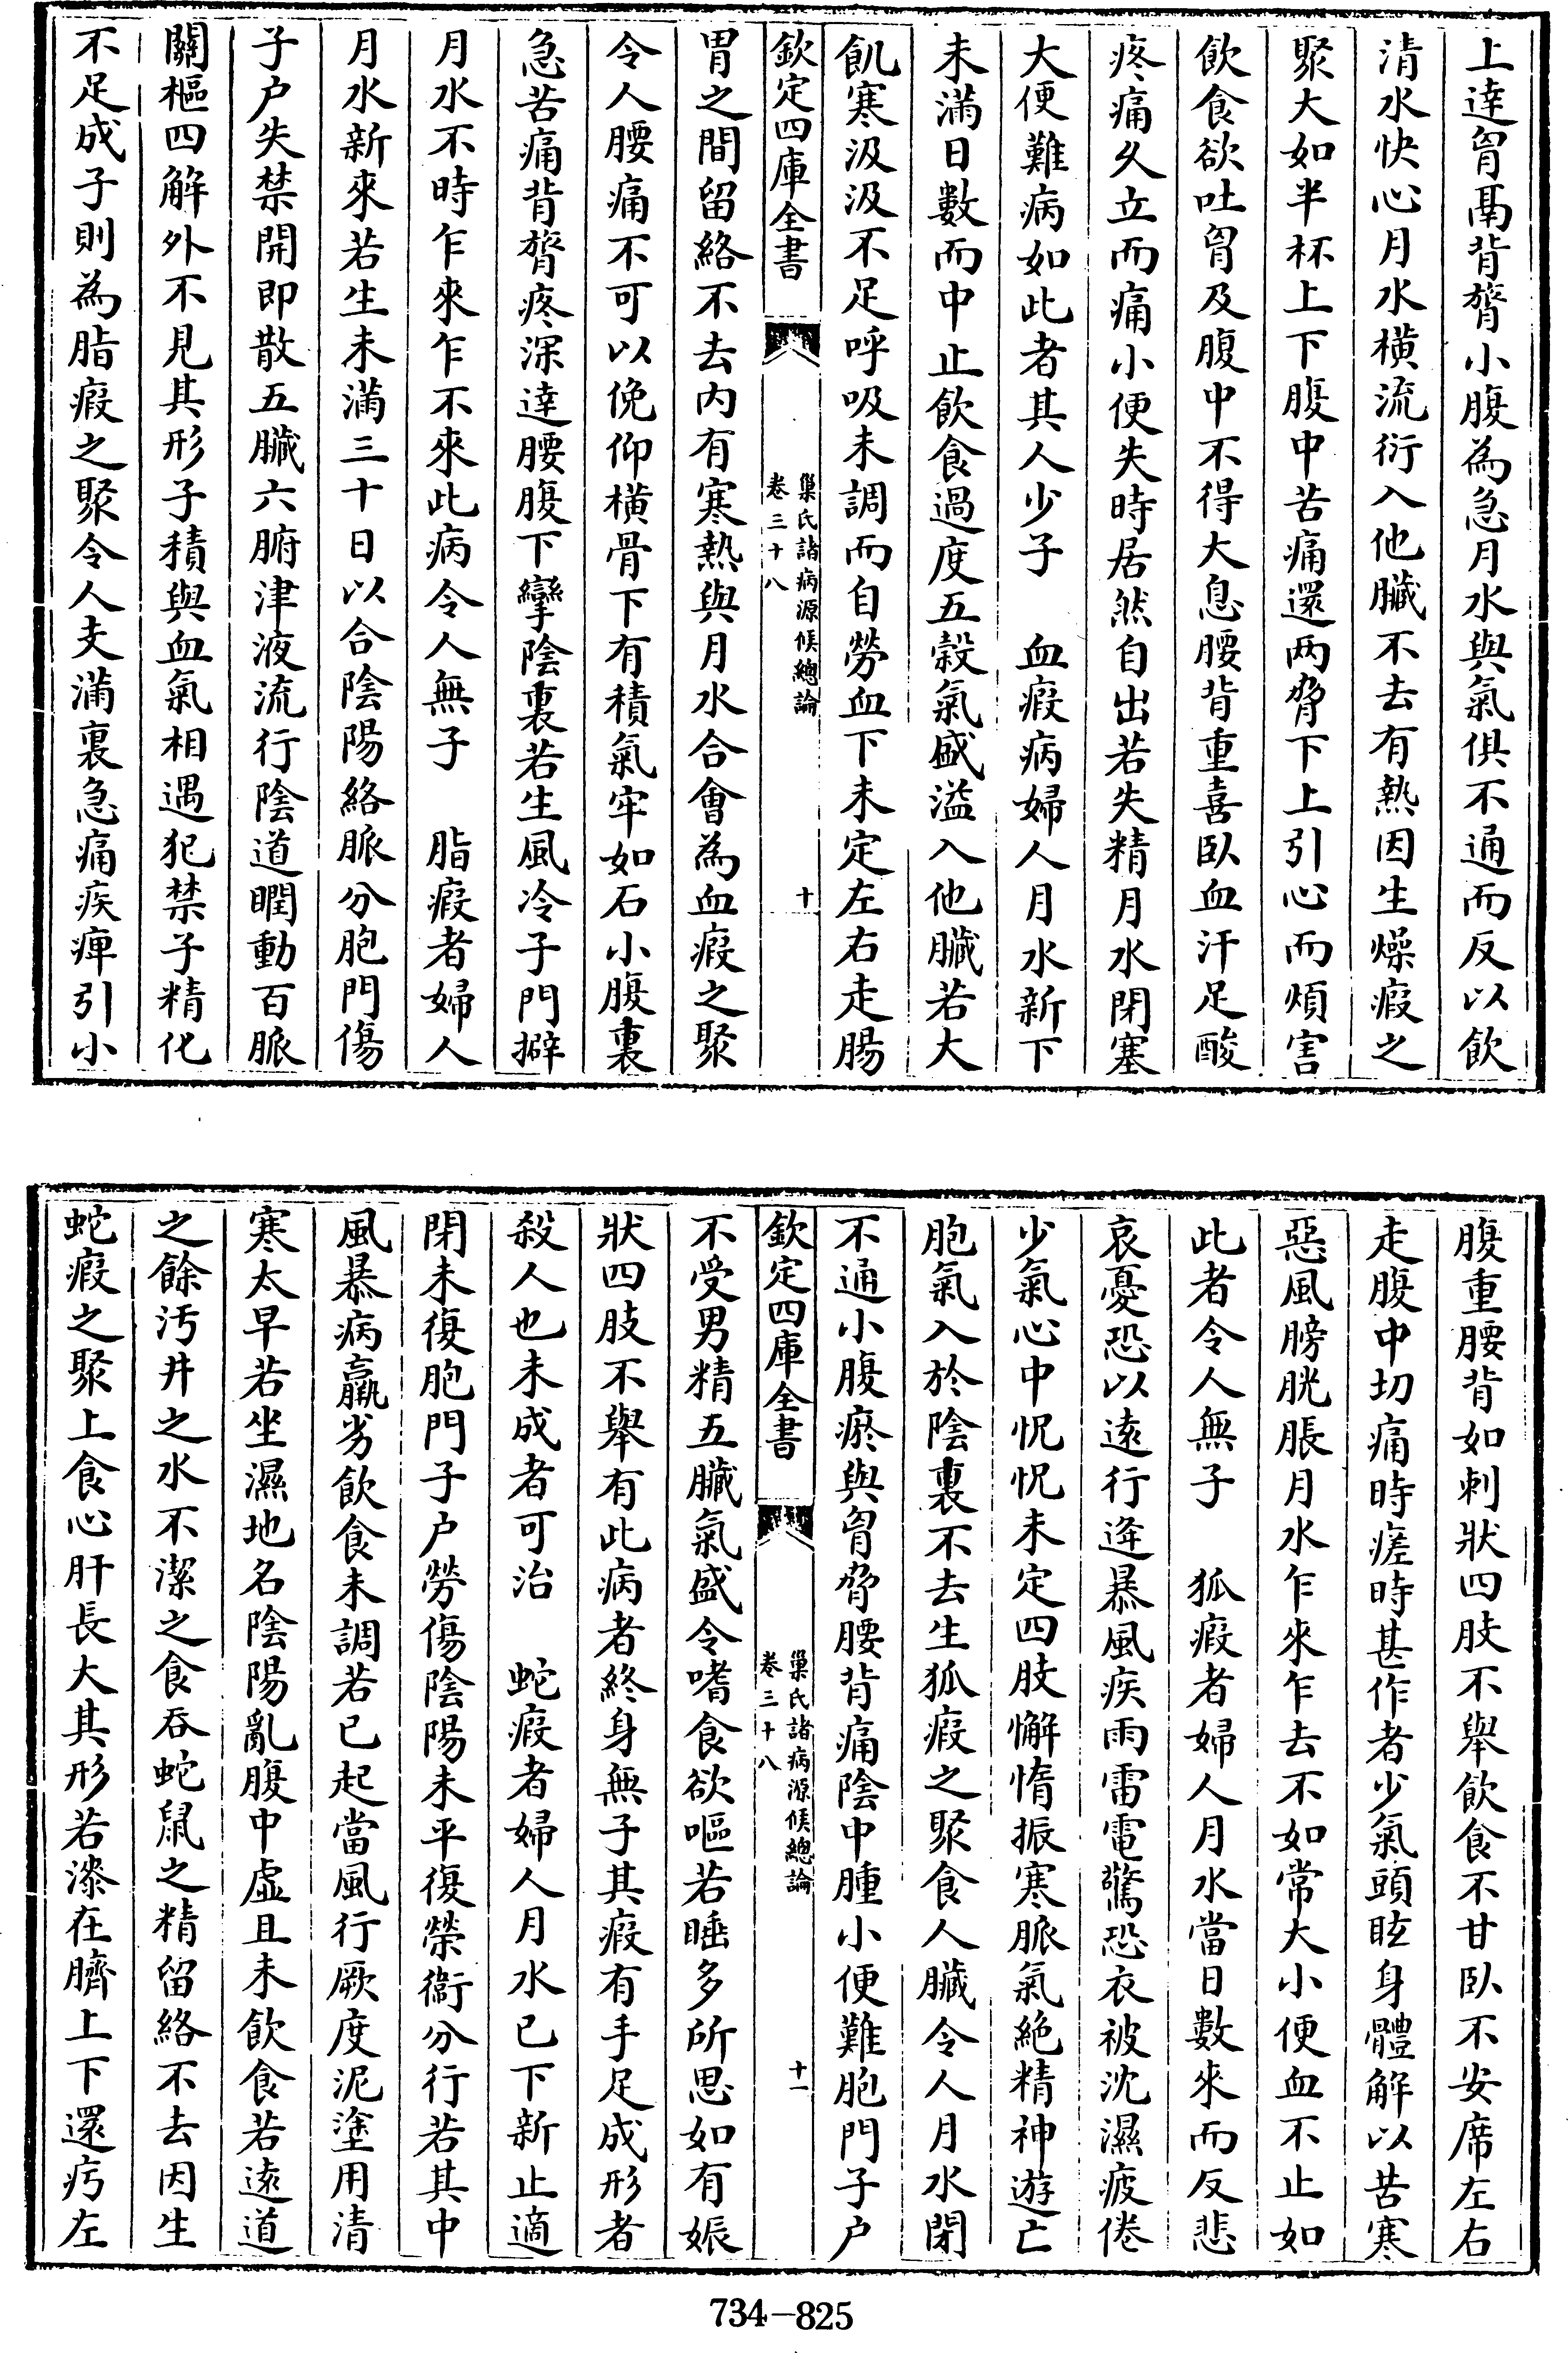 上達胷鬲背膂小腹為急月水與氣俱不通而反以飲
清水快心月水橫流衍入他臟不去有熱因生燥瘕之
聚大如半杯上下腹中苦痛還兩脅下上引心而煩害
飲食欲吐胷及腹中不得大息腰背重喜臥血汗足酸
疼痛久立而痛小便失時居然自出若失精月水閉塞
大便難病如此者其人少子　血瘕病婦人月水新下
未滿日數而中止飲食過度五穀氣盛溢入他臟若大
飢寒汲汲不足呼吸未調而自勞血下未定左右走腸
欽定四庫全書
巢氏諸病源候總論
卷三十八
十
胃之間留絡不去内有寒熱與月水合會為血瘕之聚
令人腰痛不可以俛仰橫骨下有積氣牢如石小腹裏
急苦痛背膂疼深達腰腹下攣陰裏若生風冷子門擗
月水不時乍來乍不來此病令人無子　脂瘕者婦人
月水新來若生未滿三十日以合陰陽絡脈分胞門傷
子户失禁開即散五臟六腑津液流行陰道瞤動百脈
關樞四解外不見其形子積與血氣相遇犯禁子精化
不足成子則為脂瘕之聚令人支滿裏急痛疾痺引小
腹重腰背如刺狀四肢不舉飲食不甘臥不安席左右
走腹中切痛時瘥時甚作者少氣頭眩身體解㑊苦寒
惡風膀胱脹月水乍來乍去不如常大小便血不止如
此者令人無子　狐瘕者婦人月水當日數來而反悲
哀憂恐以遠行逄暴風疾雨雷電驚恐衣被沈濕疲倦
少氣心中怳怳未定四肢懈惰振寒脈氣絶精神遊亡
胞氣入於陰裏不去生狐瘕之聚食人臟令人月水閉
不通小腹瘀與胷脅腰背痛陰中腫小便難胞門子户
欽定四庫全書
巢氏諸病源候總論
卷三十八
十一
不受男精五臟氣盛令嗜食欲嘔若睡多所思如有娠
狀四肢不舉有此病者終身無子其瘕有手足成形者
殺人也未成者可治　蛇瘕者婦人月水已下新止適
閉未復胞門子户勞傷陰陽未平復榮衞分行若其中
風暴病羸劣飲食未調若已起當風行厥度泥塗用清
寒太早若坐濕地名陰陽亂腹中虛且未飲食若遠道
之餘汚井之水不潔之食吞蛇鼠之精留絡不去因生
蛇瘕之聚上食心肝長大其形若漆在臍上下還疞左
734-825